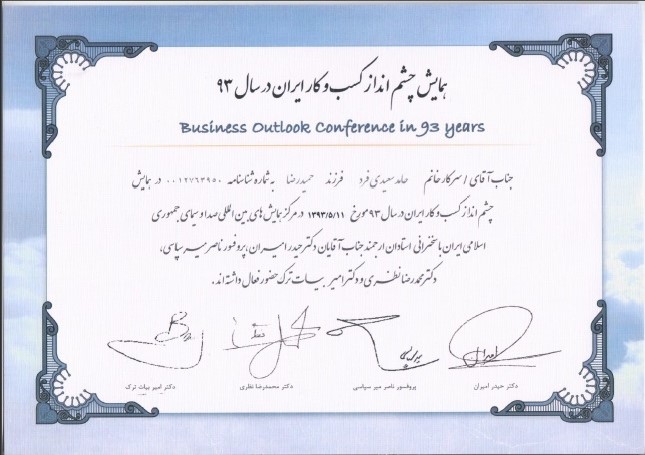 همایش چشم انداز کسب و کار ایران در سال ۹۳
Business Outlook Conference in 93 years
جناب آقای / سرکار خانم حامد سعیدی فرد فرزند حمیدرضا به شماره شناسنامه ۰۰۱۲۷۶۳۹۵۰ در همایش
چشم انداز کسب و کار ایران در سال ۹۳ مورخ ۱۳۹۳/۵/۱۱ در مرکز همایش های بین المللی صدا و سیمای جمهوری
اسلامی ایران با سخنرانی استادان ارجمند جناب آقایان دکتر حیدر امیران، پروفسور ناصر میرسپاسی،
دکتر محمدرضا نظری و دکتر امیر بیات ترک حضور فعال داشته اند.
دکتر حیدر امیران
پروفسور ناصر میر سپاسی
دکتر محمدرضا نظری
دکتر امیر بیات ترک